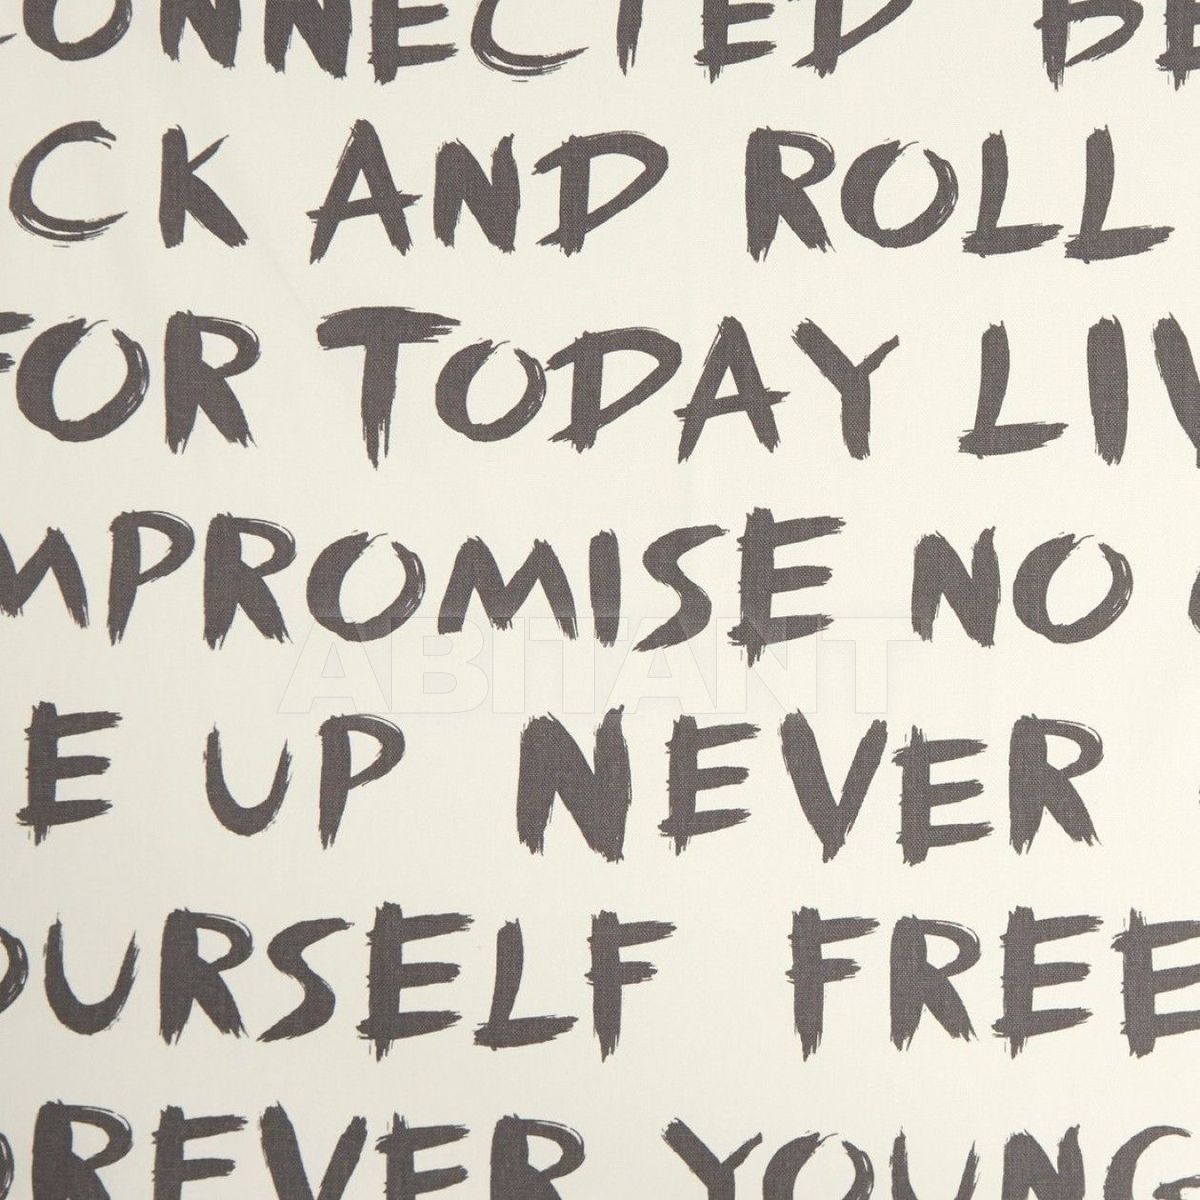 ONNECTED BE
CK AND ROLL
FOR TODAY LIV
MPROMISE NO
E UP NEVER
ABITANT
OURSELF FREE
OREVER YOUNG